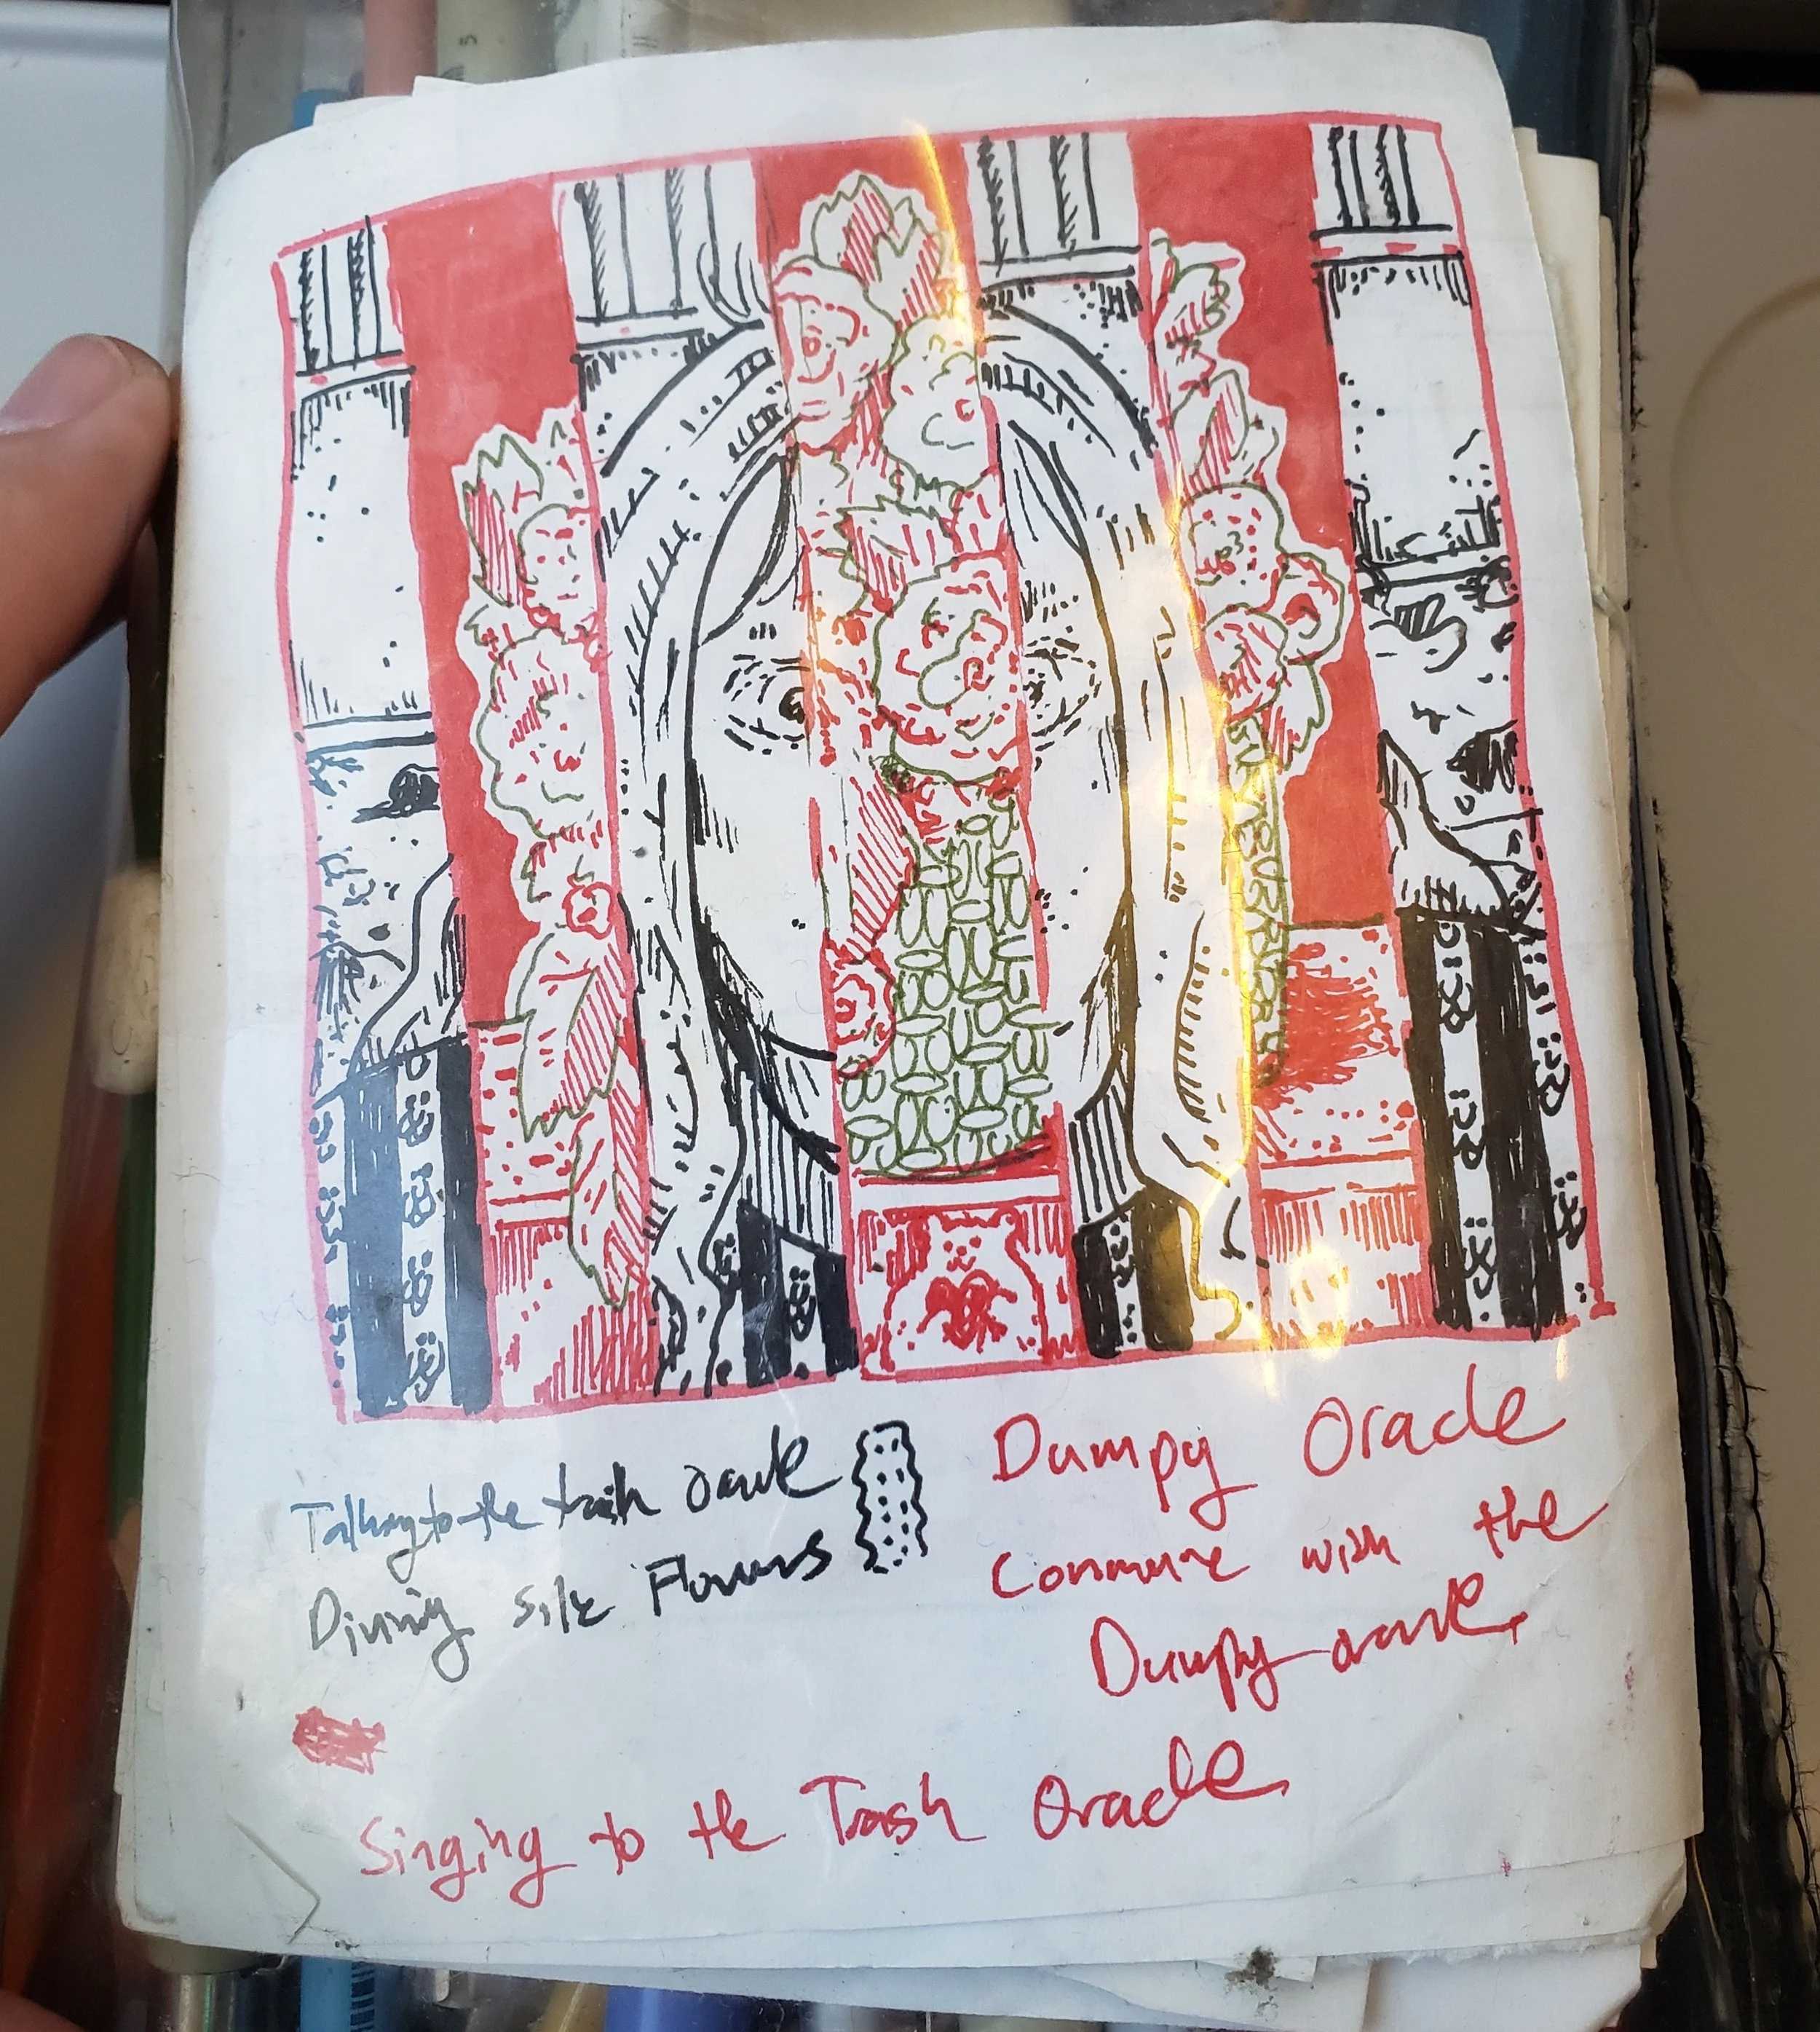 Talking to the trash oracle
Divining silk Flowers
Dumpy Oracle
Commune with the
Dumpy oracle
Singing to the Trash Oracle